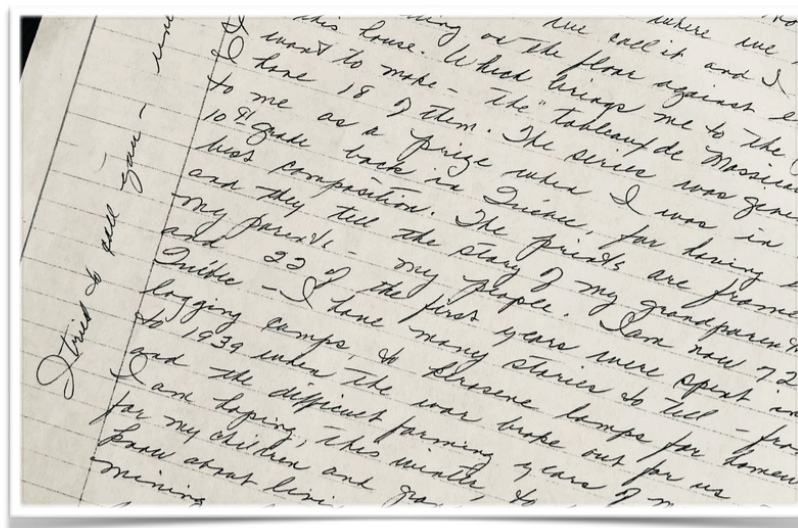 where we
we call it and I
on the floor against
this house. Which brings me to the
want to make - the "tableaux de Massico
I have 18 of them. The series was give
to me as a prize when I was in
10th grade back in Québec, for having
best composition. The prints are frame
and they tell the story of my grandparen
my parents - my people. I am now 72
and 22 of the first years were spent in
Québec - I have many stories to tell - fro
logging camps, to kerosene lamps for homew
to 1939 when the war broke out for us
and the difficult farming years of m
I am hoping, this winter, to
for my children and gra
know about livi
mining
I tried to call you -